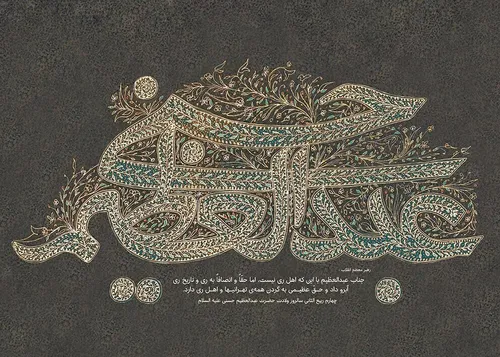 عبدالعظیم حسنی
رهبر معظم انقلاب :
جناب عبدالعظیم با این که اهل ری نیست، اما حقّاً و انصافاً به ری و تاریخ ری
آبرو داد و حـق عظیـمی به گردن همه‌ی تهرانیها و اهـل ری دارد.
چهارم ربیع الثانی سالروز ولادت حضرت عبدالعظیم حسنی علیه السلام